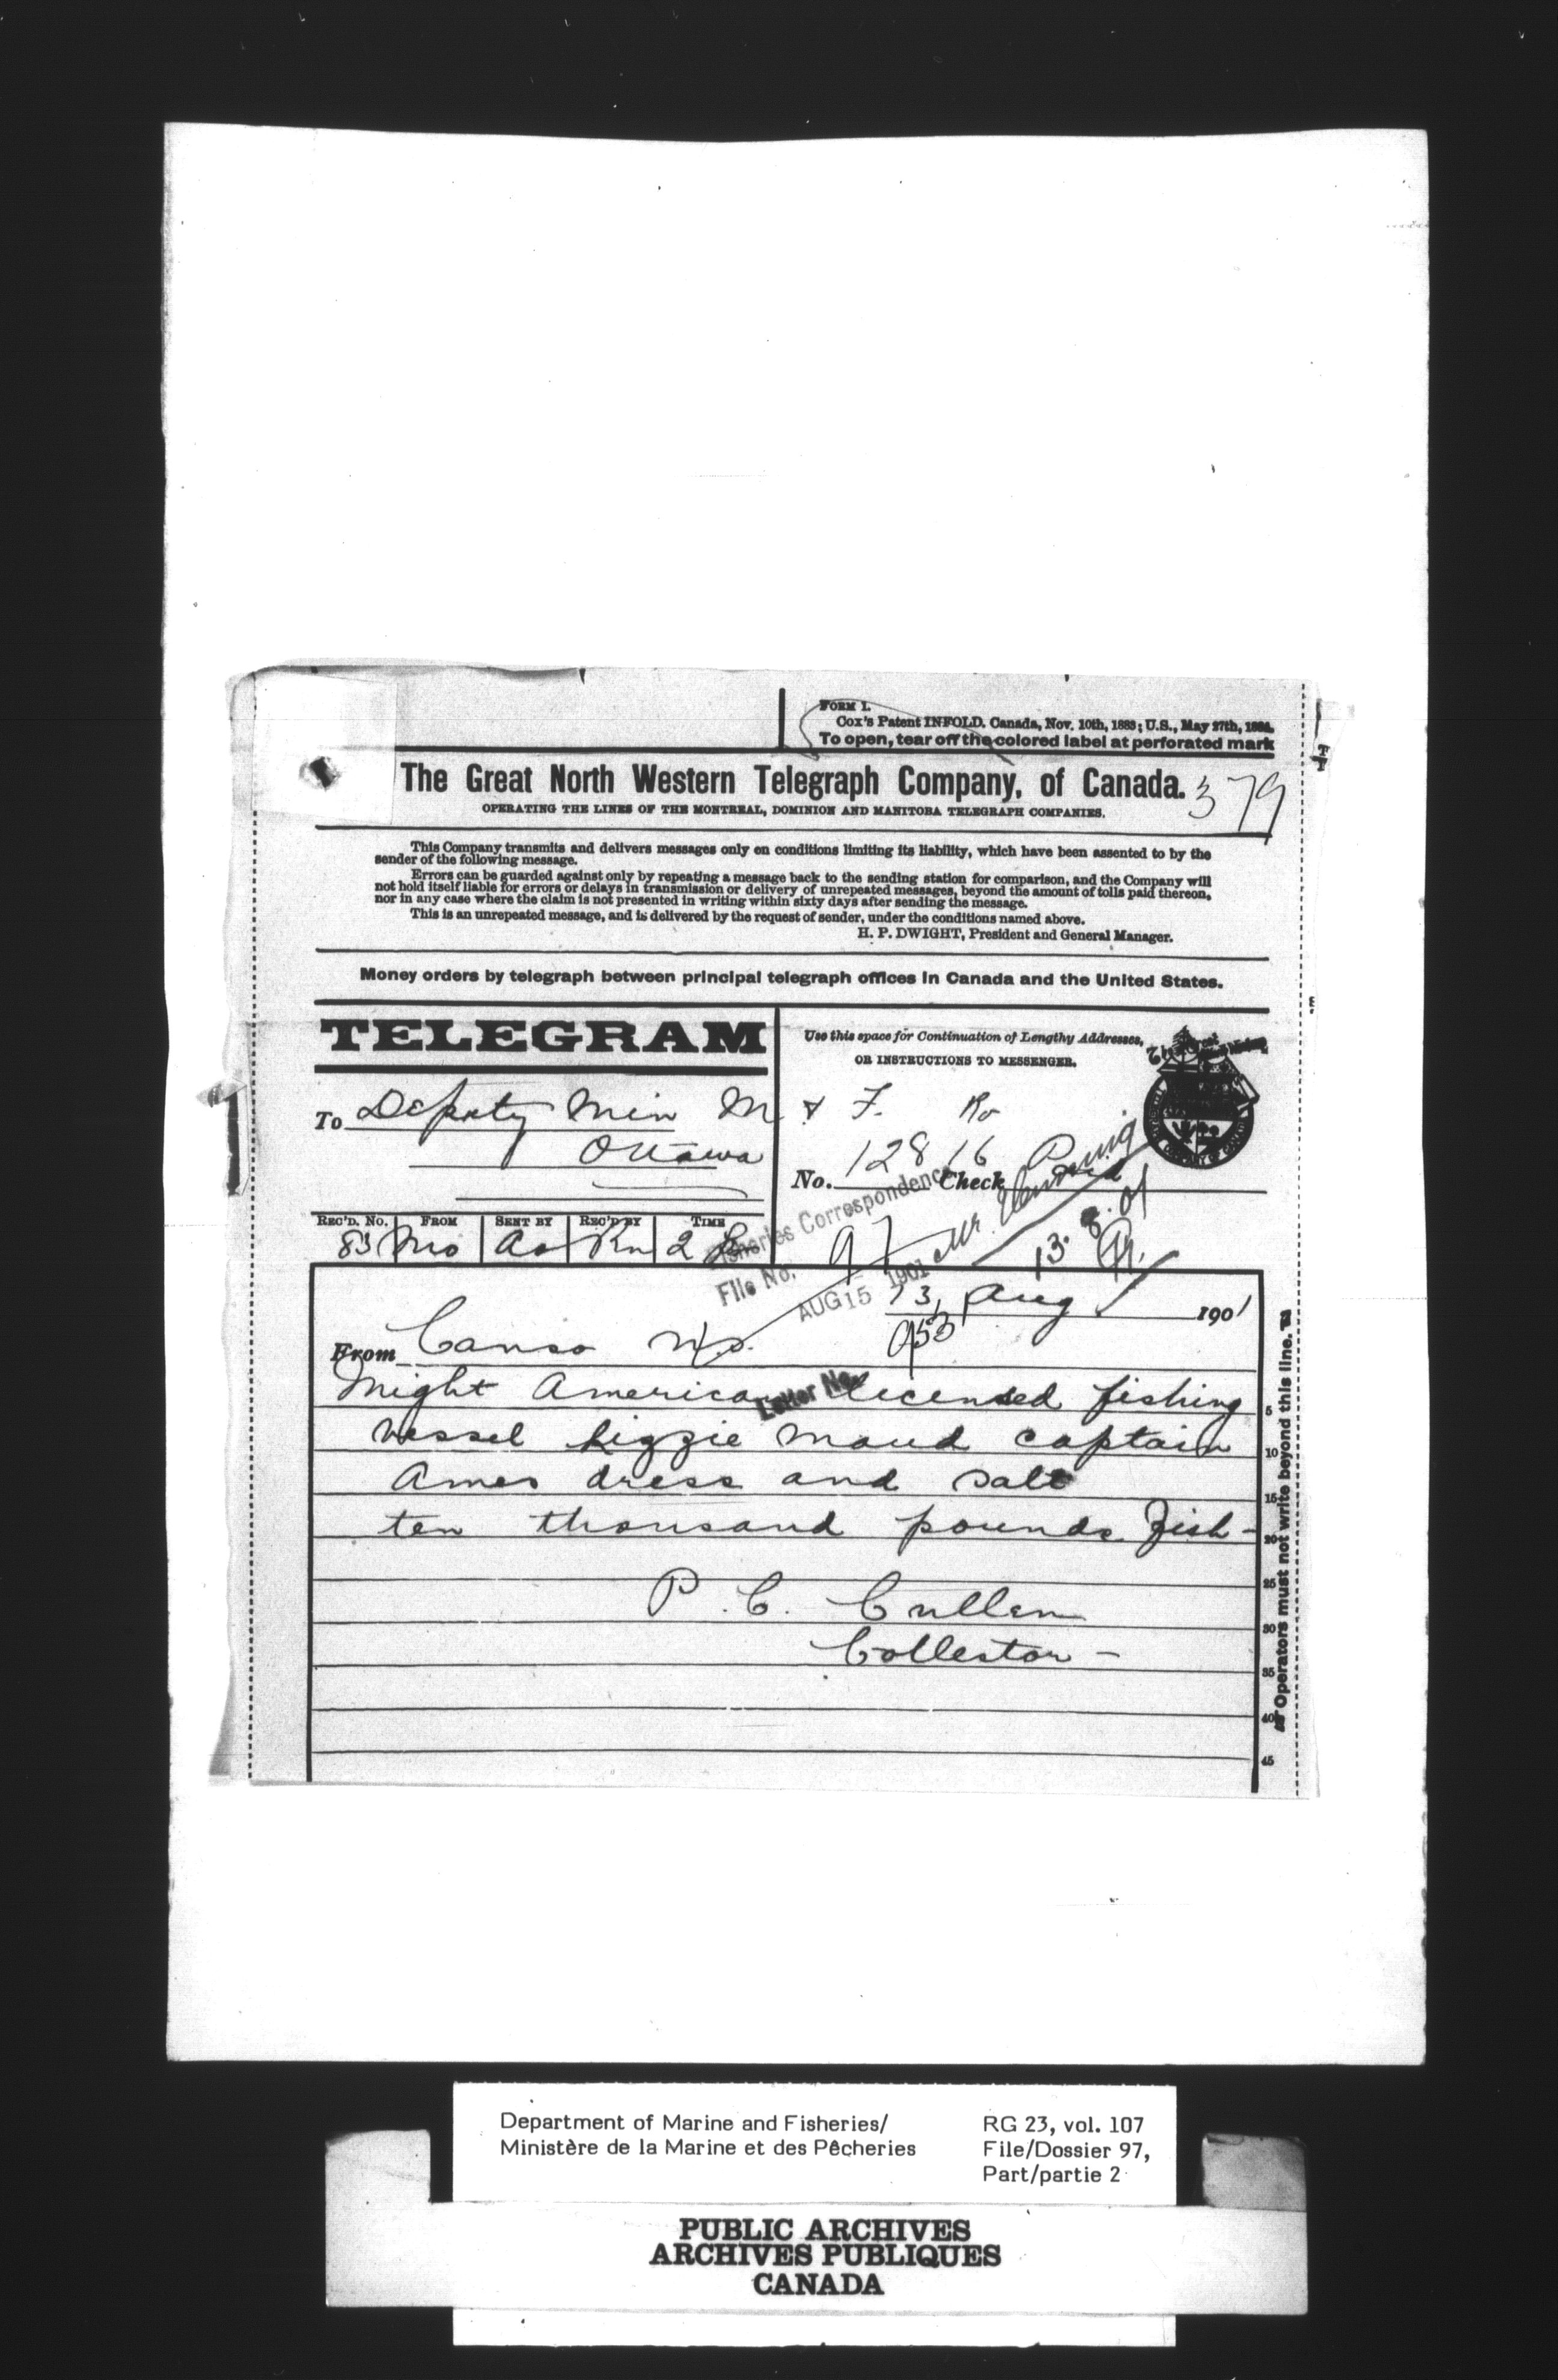 FORM 1.
Cox's Patent INFOLD. Canada, Nov. 10th, 1883; U.S., May 27th, 1884.
To open, tear off the colored label at perforated mark
The Great North Western Telegraph Company, of Canada.
379
OPERATING THE LINES OF THE MONTREAL, DOMINION AND MANITOBA TELEGRAPH COMPANIES.
This Company transmits and delivers messages only on conditions limiting its liability, which have been assented to by the
sender of the following message.
Errors can be guarded against only by repeating a message back to the sending station for comparison, and the Company will
not hold itself liable for errors or delays in transmission or delivery of unrepeated messages, beyond the amount of tolls paid thereon,
nor in any case where the claim is not presented in writing within sixty days after sending the message.
This is an unrepeated message, and is delivered by the request of sender, under the conditions named above.
H. P. DWIGHT, President and General Manager.
Money orders by telegraph between principal telegraph offices in Canada and the United States.
TELEGRAM
Use this space for Continuation of Lengthy Addresses,
OR INSTRUCTIONS TO MESSENGER.
To Deputy Min M & F.
Ottawa
No. 128 16 Check
REC'D. No. FROM SENT BY REC'D BY TIME
83 Mo 2
Fisheries Correspondence
File No. 97
AUG 15 1901
Mr.
13.8.01
13 Aug 1901
953
From Canso N.S.
Letter No.
Might American licensed fishing
vessel Lizzie Maud captain
Ames dress and salt
ten thousand pounds fish -
P. C. Cullen
Collestor -
5
10
15
20
25
30
35
40
45
Operators must not write beyond this line.
Department of Marine and Fisheries/
Ministère de la Marine et des Pêcheries
RG 23, vol. 107
File/Dossier 97,
Part/partie 2
PUBLIC ARCHIVES
ARCHIVES PUBLIQUES
CANADA